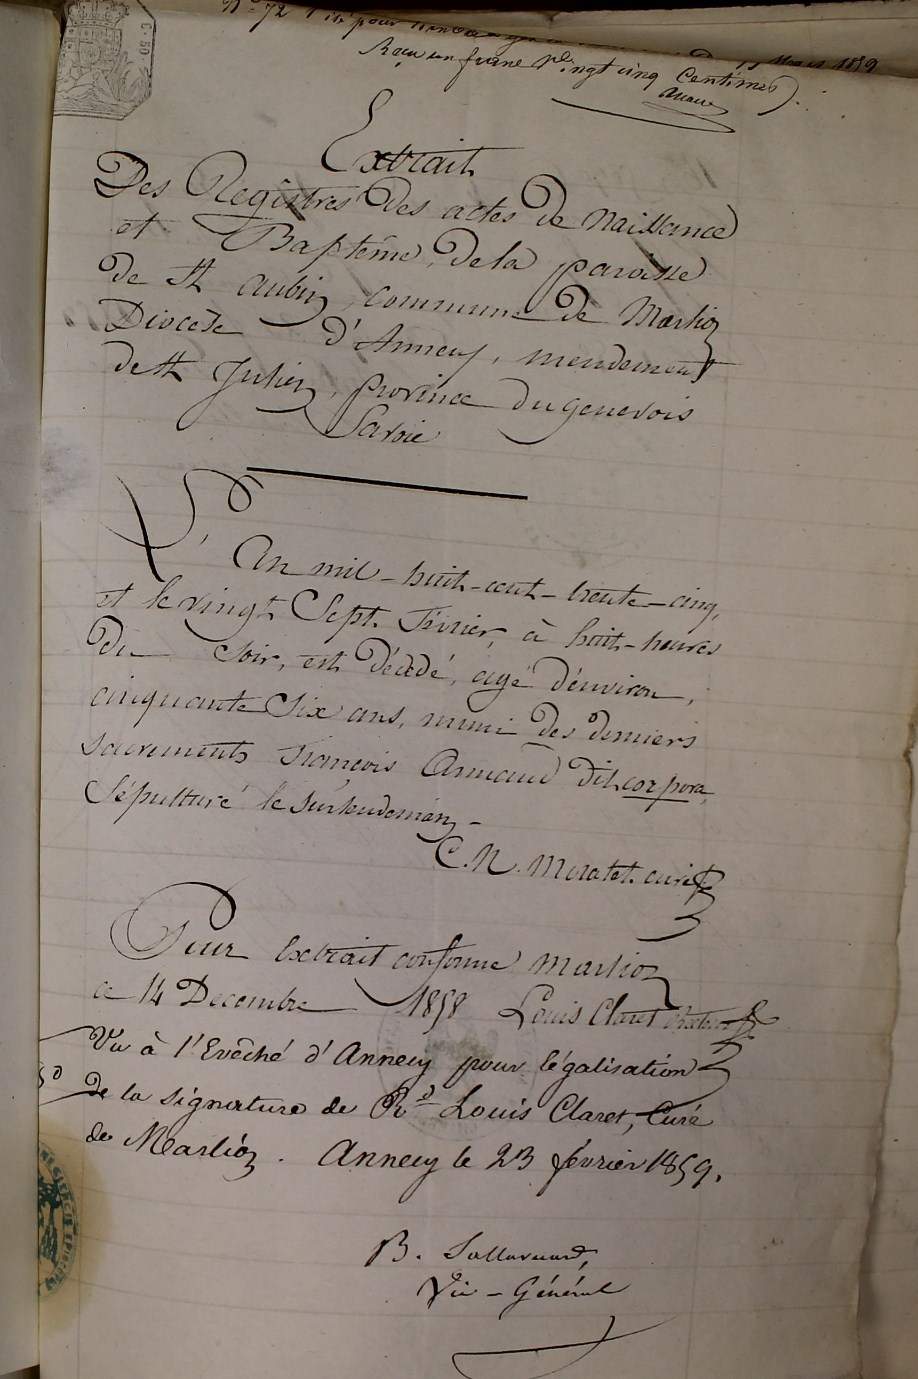 N° 72 pour
15 Mars 1859
Reçu un franc Vingt cinq Centimes
C. 50
Extrait
Des Registres des actes de naissance
et Baptême, de la paroisse
de St Aubin, commune de Marlioz
Diocèse d'Annecy, mendement
de St Julien, province du genevois
Savoie
L'An mil-huit-cent-trente-cinq,
et le vingt Sept. Février, à huit-heures
Du Soir, est Décédé, agé d'environ,
cinquante Six ans, muni des derniers
sacrements François Armand dit corpora,
Sépulturé le surlendemain -
C. N. Moratet. curé
Pour Extrait conforme Marlioz
ce 14 Decembre 1858 Louis Claret
Vu à l'Evêché d'Annecy pour légalisation
de la signature de Rd Louis Claret, Curé
de Marlioz. Annecy le 23 février 1859.
B.
Vic-Général